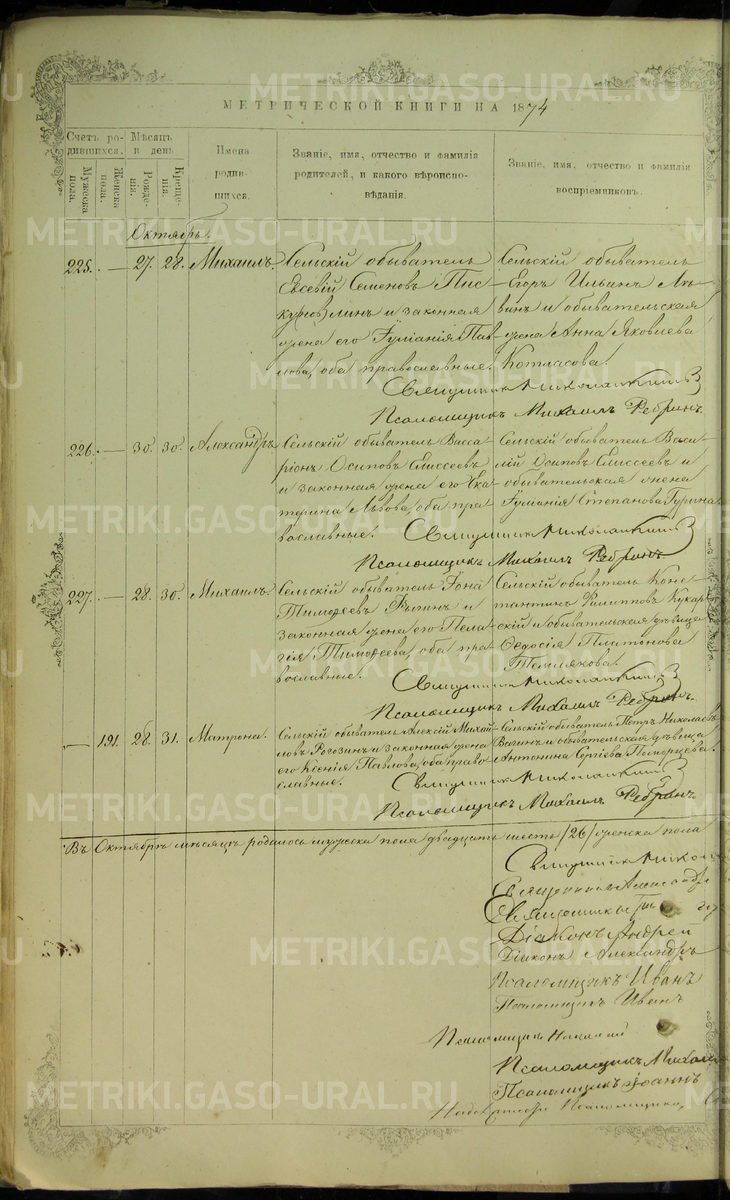 МЕТРИЧЕСКОЙ КНИГИ НА 1874
Счетъ ро-
дившихся.
Мужеска пола.
Женска пола.
Мѣсяцъ
и день
Рожде-
нія.
Креще-
нія.
Имена
родив-
шихся.
Званіе, имя, отчество и фамилія
родителей, и какого вѣроиспо-
вѣданія.
Званіе, имя, отчество и фамилія
воспріемниковъ.
Октябрь.
225. — 27. 28. Михаилъ.
Сельскій обыватель
Евсевій Семеновъ Пис-
и законная
жена его Іуліанія Пав-
лова, оба православные.
Сельскій обыватель
Егоръ Ильинъ
и обывательская
жена Анна Яковлева
Котласова.
Священникъ
Псаломщикъ Михаилъ Ребринъ
226. — 30. 30. Александръ
Сельскій обыватель Висса-
ріонъ Осиповъ Елиссеевъ
и законная жена его Ека-
терина Львова, оба пра-
вославные.
Сельскій обыватель Васи-
лій Осиповъ Елиссеевъ и
обывательская жена
Іуліанія Степанова Гурина
Священникъ
Псаломщикъ Михаилъ Ребринъ
227. — 28. 30. Михаилъ.
Сельскій обыватель Іона
Тимофеевъ и
законная жена его Пела-
гія Тимофеева, оба пра-
вославные.
Сельскій обыватель Конс-
тантинъ Филипповъ Кукар-
скій и обывательская дѣвица
Федосія Платонова
Теплякова.
Священникъ
Псаломщикъ Михаилъ Ребринъ
— 191. 28. 31. Матрона.
Сельскій обыватель Алексій Михай-
ловъ Рогозинъ и законная жена
его Ксенія Павлова, оба право-
славные.
Сельскій обыватель Петръ Николаевъ
и обывательская дѣвица
Антонина Сергіева
Священникъ
Псаломщикъ Михаилъ Ребринъ
Въ Октябрѣ мѣсяцѣ родилось мужеска пола двадцать шесть /26/ женска пола
Священникъ
Священникъ Александръ
Священникъ
Діаконъ Андрей
Діаконъ Александръ
Псаломщикъ Иванъ
Псаломщикъ Иванъ
Псаломщикъ
Псаломщикъ Михаил
Псаломщикъ Іоаннъ
Псаломщика
METRIKI.GASO-URAL.RU